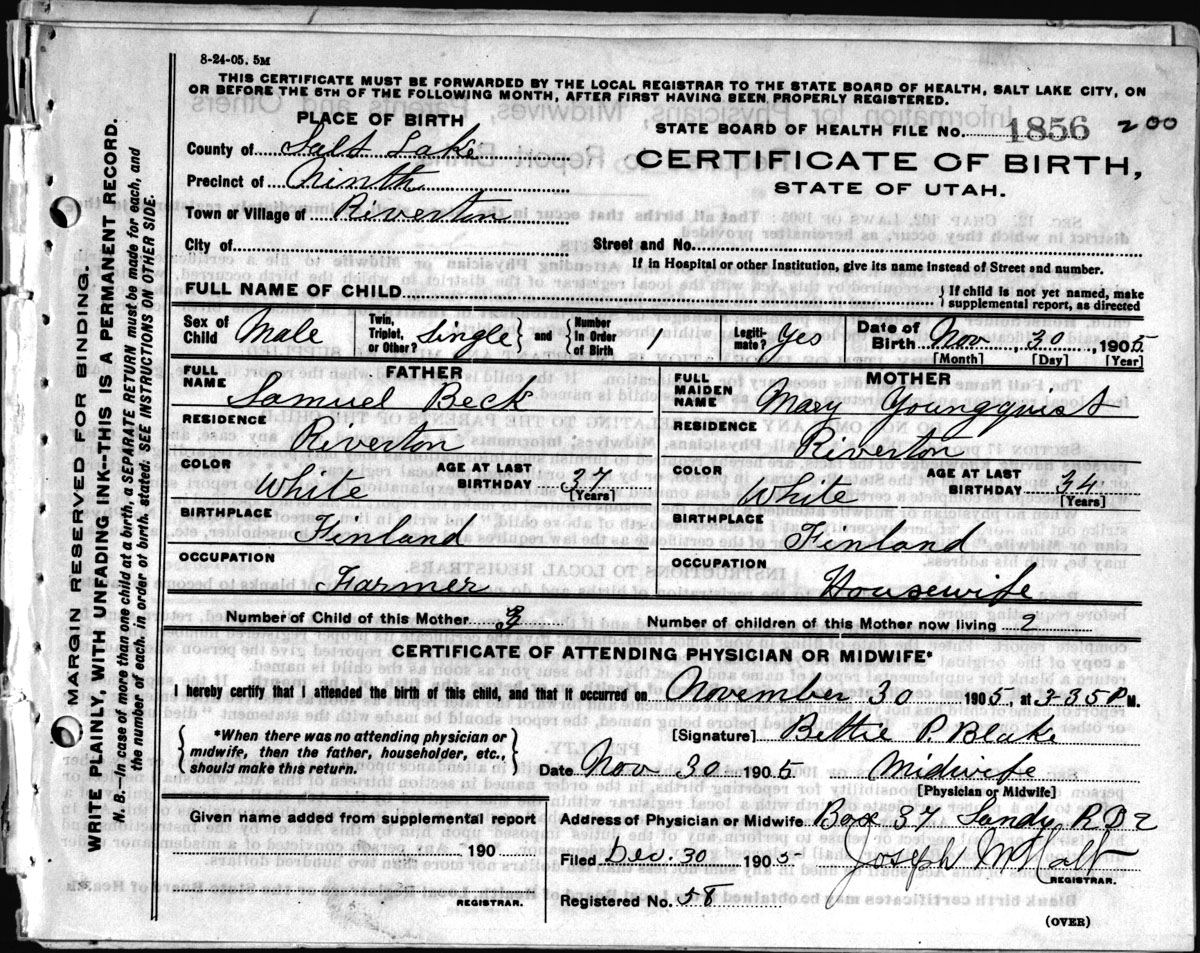 8-24-05. 5M
THIS CERTIFICATE MUST BE FORWARDED BY THE LOCAL REGISTRAR TO THE STATE BOARD OF HEALTH, SALT LAKE CITY, ON
OR BEFORE THE 5TH OF THE FOLLOWING MONTH, AFTER FIRST HAVING BEEN PROPERLY REGISTERED.
PLACE OF BIRTH
STATE BOARD OF HEALTH FILE No. 1856 200
County of Salt Lake
CERTIFICATE OF BIRTH,
STATE OF UTAH.
Precinct of Ninth
Town or Village of Riverton
City of
Street and No.
If in Hospital or other Institution, give its name instead of Street and number.
FULL NAME OF CHILD
} If child is not yet named, make
supplemental report, as directed
Sex of Child Male
Twin, Triplet, or Other? Single } and { Number In Order of Birth 1
Legitimate? Yes
Date of Birth Nov, 30, 1905
[Month] [Day] [Year]
FATHER
FULL NAME Samuel Beck
RESIDENCE Riverton
COLOR White AGE AT LAST BIRTHDAY 37 [Years]
BIRTHPLACE Finland
OCCUPATION Farmer
MOTHER
FULL MAIDEN NAME Mary Youngquist
RESIDENCE Riverton
COLOR White AGE AT LAST BIRTHDAY 34 [Years]
BIRTHPLACE Finland
OCCUPATION Housewife
Number of Child of this Mother
Number of children of this Mother now living 2
CERTIFICATE OF ATTENDING PHYSICIAN OR MIDWIFE*
I hereby certify that I attended the birth of this child, and that it occurred on November 30 1905, at 3-35 P M.
{ *When there was no attending physician or
midwife, then the father, householder, etc.,
should make this return. }
[Signature] Bettie P. Blake
Date Nov 30 1905. Midwife
[Physician or Midwife]
Given name added from supplemental report
190
REGISTRAR.
Address of Physician or Midwife Box 37 Sandy R.D 2
Filed Dec. 30 1905 Joseph
REGISTRAR.
Registered No. 58
(OVER)
MARGIN RESERVED FOR BINDING.
WRITE PLAINLY, WITH UNFADING INK--THIS IS A PERMANENT RECORD.
N. B.--In case of more than one child at a birth, a SEPARATE RETURN must be made for each, and
the number of each, in order of birth, stated. SEE INSTRUCTIONS ON OTHER SIDE.